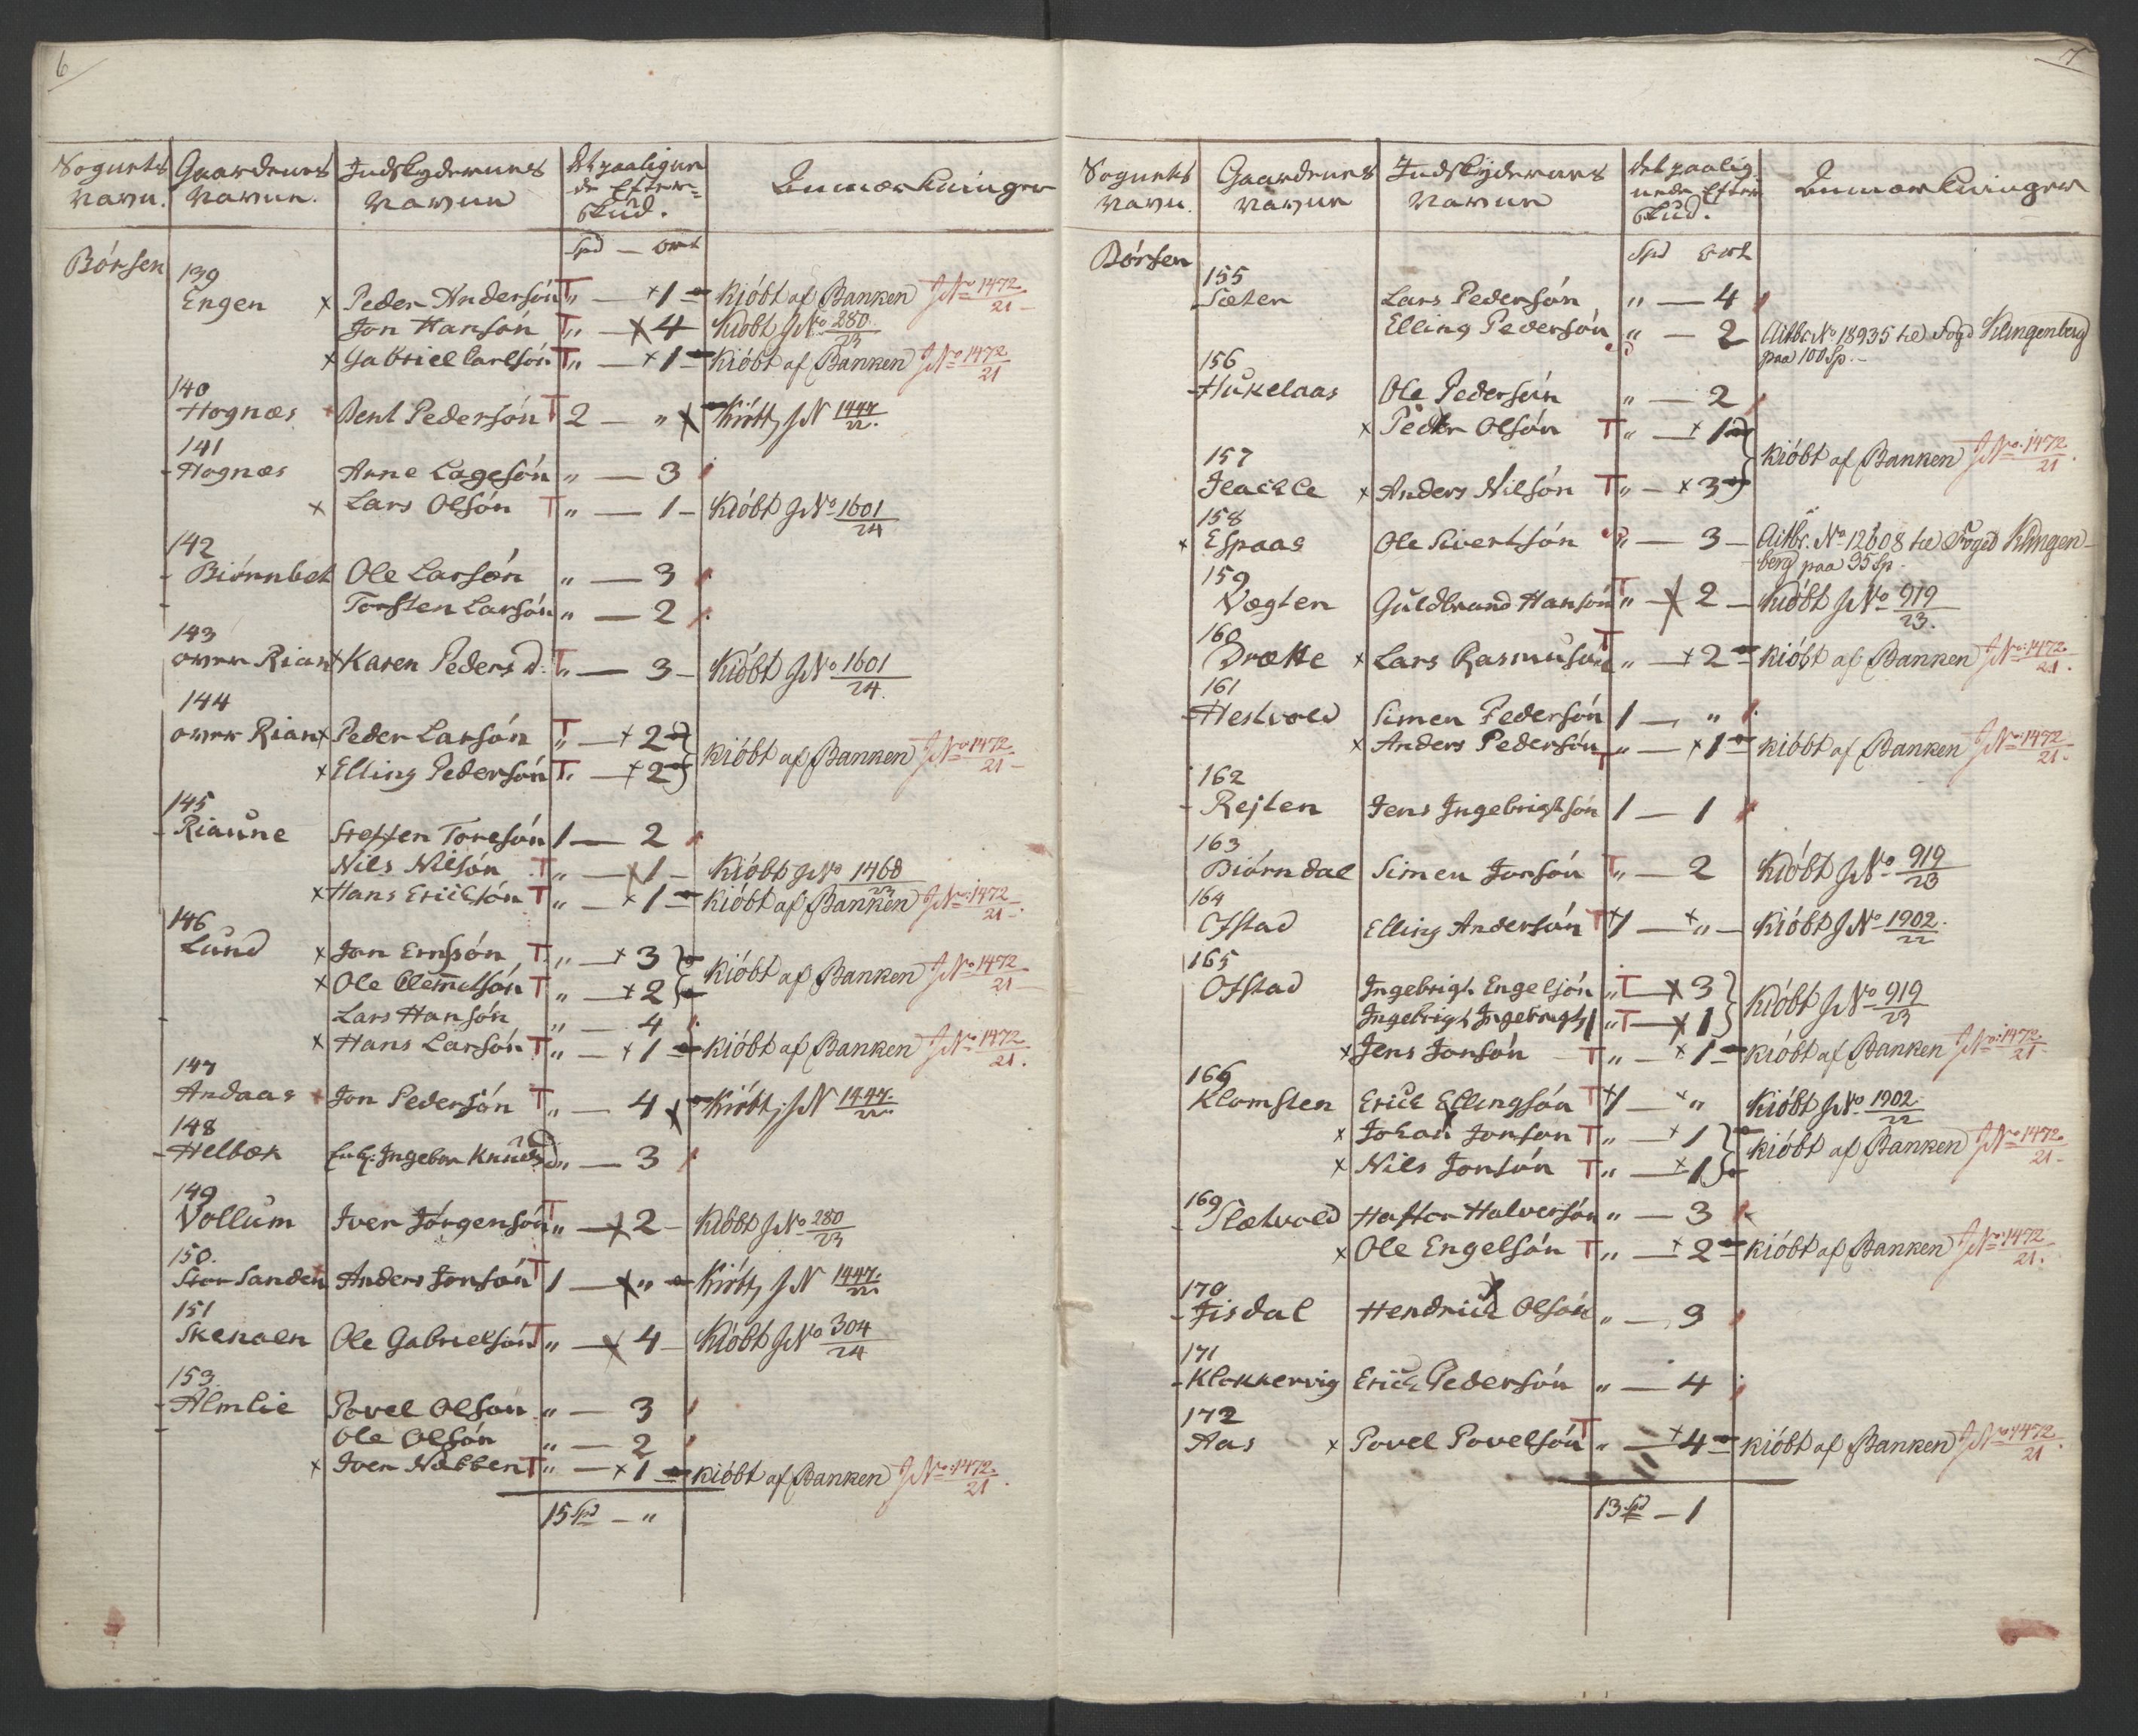 6
Sognets Gaardenes Indskydernes Det paalignen Anmærkninger
Navn. Navne. Navne de Efter-
skud.
Spd — ort
Børsen
139
Engen x Peder Andersøn T „ — x 1 — Kiøbt af Banken J No 1472/21
Jon Hansøn T „ — x 4 — Kiøbt J No 280/23
x Gabriel Carlsøn T „ — x 1 — Kiøbt af Banken J No 1472/21
140
Hognæs Bent Pedersøn T 2 — „ x Kiøbt J N 1447/22.
141
Hognæs Arne Lagesøn „ — 3
x Lars Olsøn T „ — 1 — Kiøbt J No 1601/24
142
Biørnbet Ole Larsøn „ — 3
Torsten Larsøn „ — 2
143
over Rian x Karen Peders d. T „ — 3 — Kiøbt J No 1601/24.
144
over Rian x Peder Larsøn T „ — x 2 } Kiøbt af Banken J No 1472/21
x Elling Pedersøn T „ — x 2 }
145
Riaune Steffen Toresøn 1 — 2
Nils Nilsøn T „ — x 1 — Kiøbt J No 1468/23
x Hans Erichsøn T „ — x 1 — Kiøbt af Banken J No 1472/21
146
Lund x Jon Ernsøn T „ — x 3 } Kiøbt af Banken J No 1472/21
x Ole Clemetsøn T „ — x 2 }
Lars Hansøn „ — 4
x Hans Larsøn T „ — x 1 — Kiøbt af Banken J No 1472/21.
147
Andaas Jon Pedersøn T „ — 4 x Kiøbt J N 1447/22.
148
Helbæk Enk: Ingebor Knudsd „ — 3
149
Vollum Iver Jørgensøn T „ — x 2 — Kiøbt J No 280/23
150.
Stor Sanden Anders Jonsøn T 1 — x „ — Kiøbt J N 1447/22.
151
Skenaen Ole Gabrielsøn T „ — x 4 — Kiøbt J No 304/24
153.
Almlie Povel Olsøn „ — 3
Ole Olsøn „ — 2
x Iver Nebben T „ — x 1 — Kiøbt af Banken J No 1472/21.
15 Spd — „
7
Sognets Gaardenes Indskydernes Det paalig- Anmærkninger
Navn. Navne Navne nede Efter
skud.
Spd ort
Børsen
155
Sæter Lars Pedersøn „ — 4
Elling Pedersøn „ — 2 No 18935 til Fogd Klingenberg
paa 100 Sp. —
156
Hukelaas Ole Pedersøn „ — 2
x Peder Olsøn T „ — x 1 } Kiøbt af Banken J No 1472/21.
157
x Anders Nilsøn T „ — x 3 }
158
x Espaas Ole Sivertsøn „ — 3 — No 12608 til Foged Klingen-
berg paa 95 Sp.
159
Vægten Guldbrand Hansøn T „ — x 2 — Kiøbt J No 919/23.
160
Drætte x Lars Rasmusøn T „ — x 2 — Kiøbt af Banken J No 1472/21.
161
Hestvold Simen Pedersøn 1 — „
x Anders Pedersøn T „ — x 1 — Kiøbt af Banken J No 1472/21.
162
Rejten Jens Ingebrigtsøn 1 — 1
163
Biørndal Simen Jonsøn T „ — 2 Kiøbt J No 919/23
164
Ofstad Elling Andersøn T x 1 — x „ — Kiøbt J No 1902/22.
165
Ofstad Ingebrigt Engelsøn „ T — x 3 } Kiøbt J No 919/23
Ingebrigt Ingebrigts „ T — x 1 }
x Jens Jonsøn T „ — x 1 — Kiøbt af Banken J No 1472/21
166
Klomsten Erich Ellingsøn T x 1 — x „ Kiøbt J No 1902/22
x Johan Jonsøn T „ — x 1 } Kiøbt af Banken J No 1472/21
x Nils Jonsøn T „ — x 1 }
169
Sletvold Haftor Halversøn „ — 3
x Ole Engelsøn T „ — x 2 — Kiøbt af Banken J No 1472/21.
170
Fisdal Hendrich Olsøn „ — 3
171
Klokkervig Erich Pedersøn „ — 4
172
Aas x Povel Povelsøn T „ — x 4 — Kiøbt af Banken J No 1472/21
13 Spd — 1